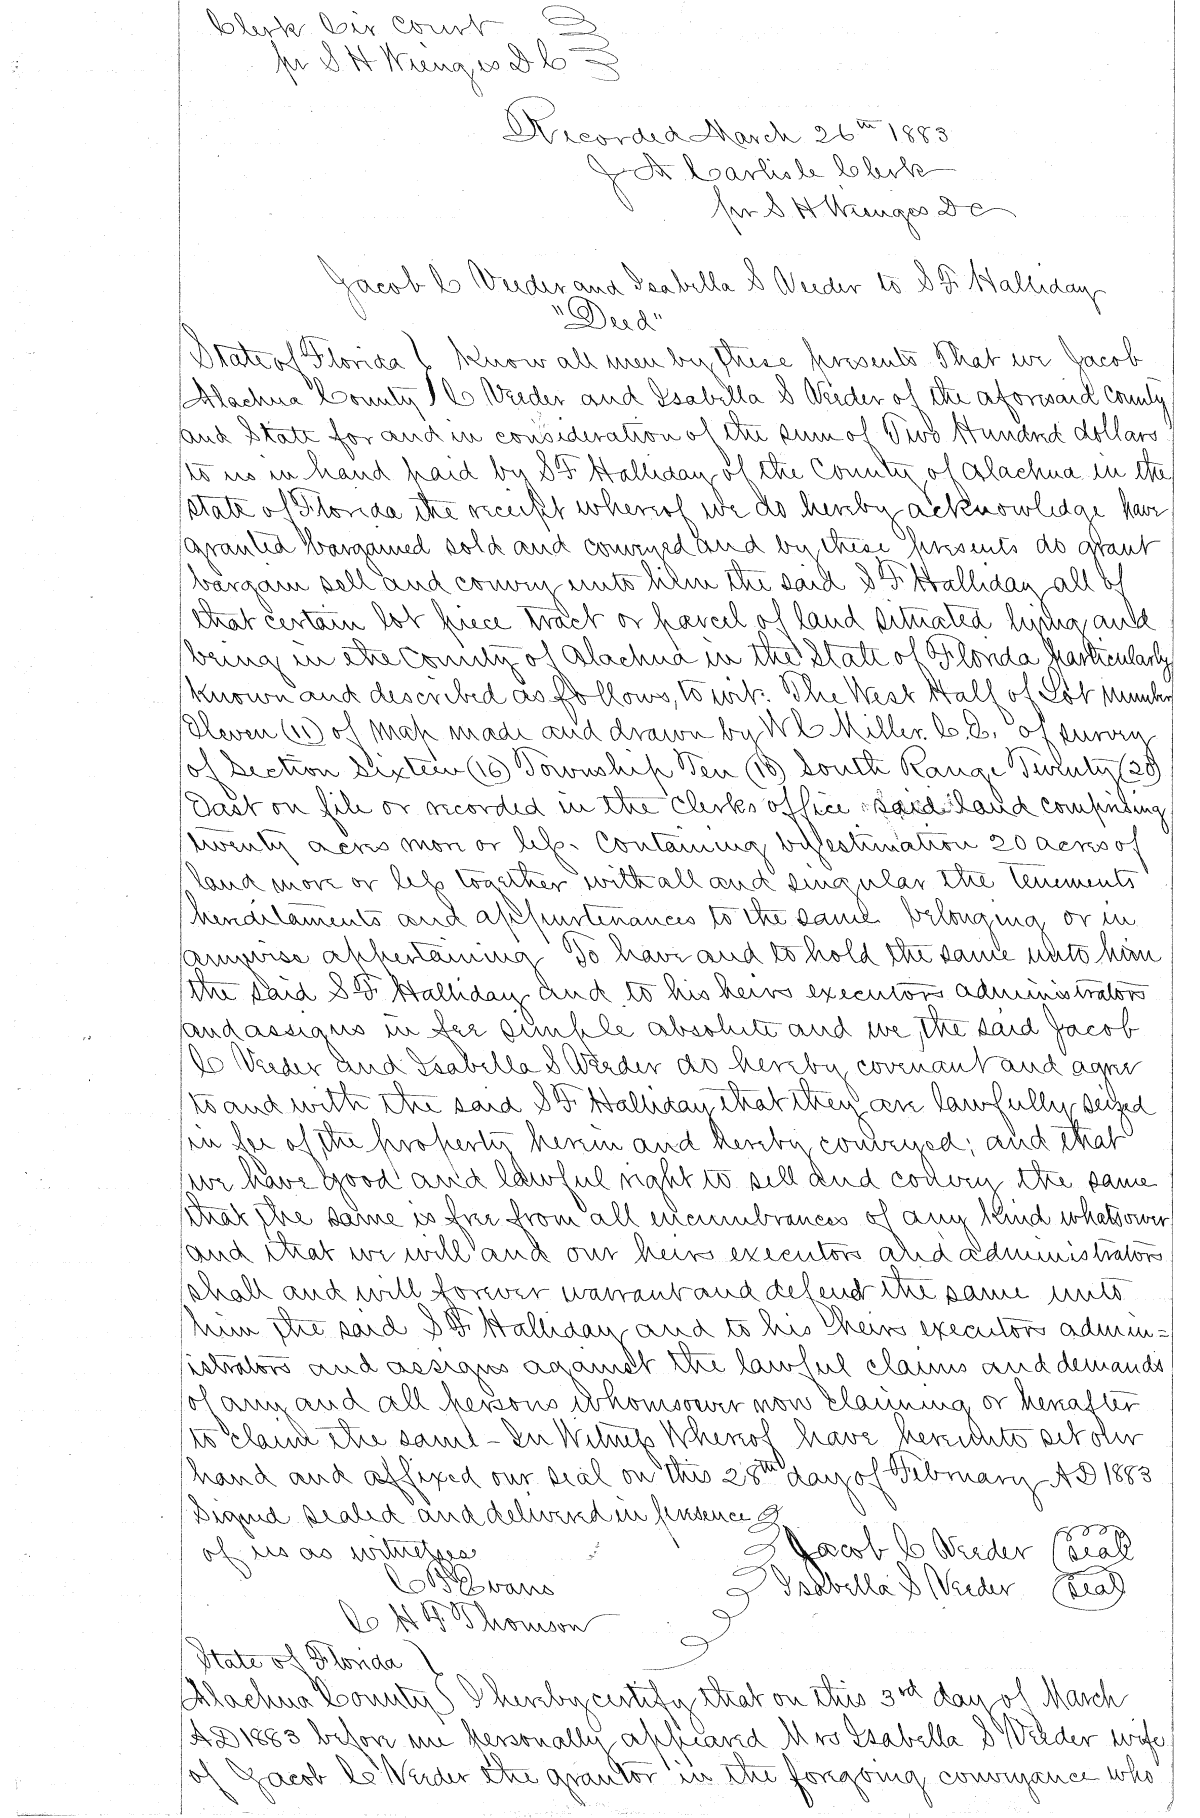 Clerk Cir Court
pr S H Wienges D C
Recorded March 26th 1883
J A Carlisle Clerk
pr S H Wienges D C
Jacob C Veeder and Isabella S Veeder to S F Halliday
"Deed"
State of Florida } Know all men by these presents That we Jacob
Alachua County } C Veeder and Isabella S Veeder of the aforesaid County
and State for and in consideration of the sum of Two Hundred dollars
to us in hand paid by S F Halliday of the County of Alachua in the
State of Florida the receipt whereof we do hereby acknowledge have
granted bargained sold and conveyed and by these presents do grant
bargain sell and convey unto him the said S F Halliday all of
that certain lot piece tract or parcel of land situated lying and
being in the County of Alachua in the State of Florida particularly
known and described as follows, to wit: The West Half of Lot number
Eleven (11) of map made and drawn by W C Miller. C. E. of survey
of Section Sixteen (16) Township Ten (10) South Range Twenty (20)
East on file or recorded in the Clerks office said land comprising
twenty acres more or less. Containing by estimation 20 acres of
land more or less together with all and singular the tenements
hereditaments and appurtenances to the same belonging or in
anywise appertaining To have and to hold the same unto him
the said S F Halliday and to his heirs executors administrators
and assigns in fee simple absolute and we the said Jacob
C Veeder and Isabella S Veeder do hereby covenant and agree
to and with the said S F Halliday that they are lawfully seized
in fee of the property herein and hereby conveyed; and that
we have good and lawful right to sell and convey the same
that the same is free from all incumbrances of any kind whatsoever
and that we will and our heirs executors and administrators
shall and will forever warrant and defend the same unto
him the said S F Halliday and to his heirs executors admin=
istrators and assigns against the lawful claims and demands
of any and all persons whomsoever now claiming or hereafter
to claim the same - In Witness Whereof have hereunto set our
hand and affixed our seal on this 28th day of February A D 1883
Signed sealed and delivered in presence
of us as witnesses
Jacob C Veeder (seal)
C B Evans
Isabella S Veeder (seal)
C H F Thomson
State of Florida }
Alachua County } I hereby certify that on this 3rd day of March
A D 1883 before me personally appeared Mrs Isabella S Veeder wife
of Jacob C Veeder the grantor in the foregoing conveyance who